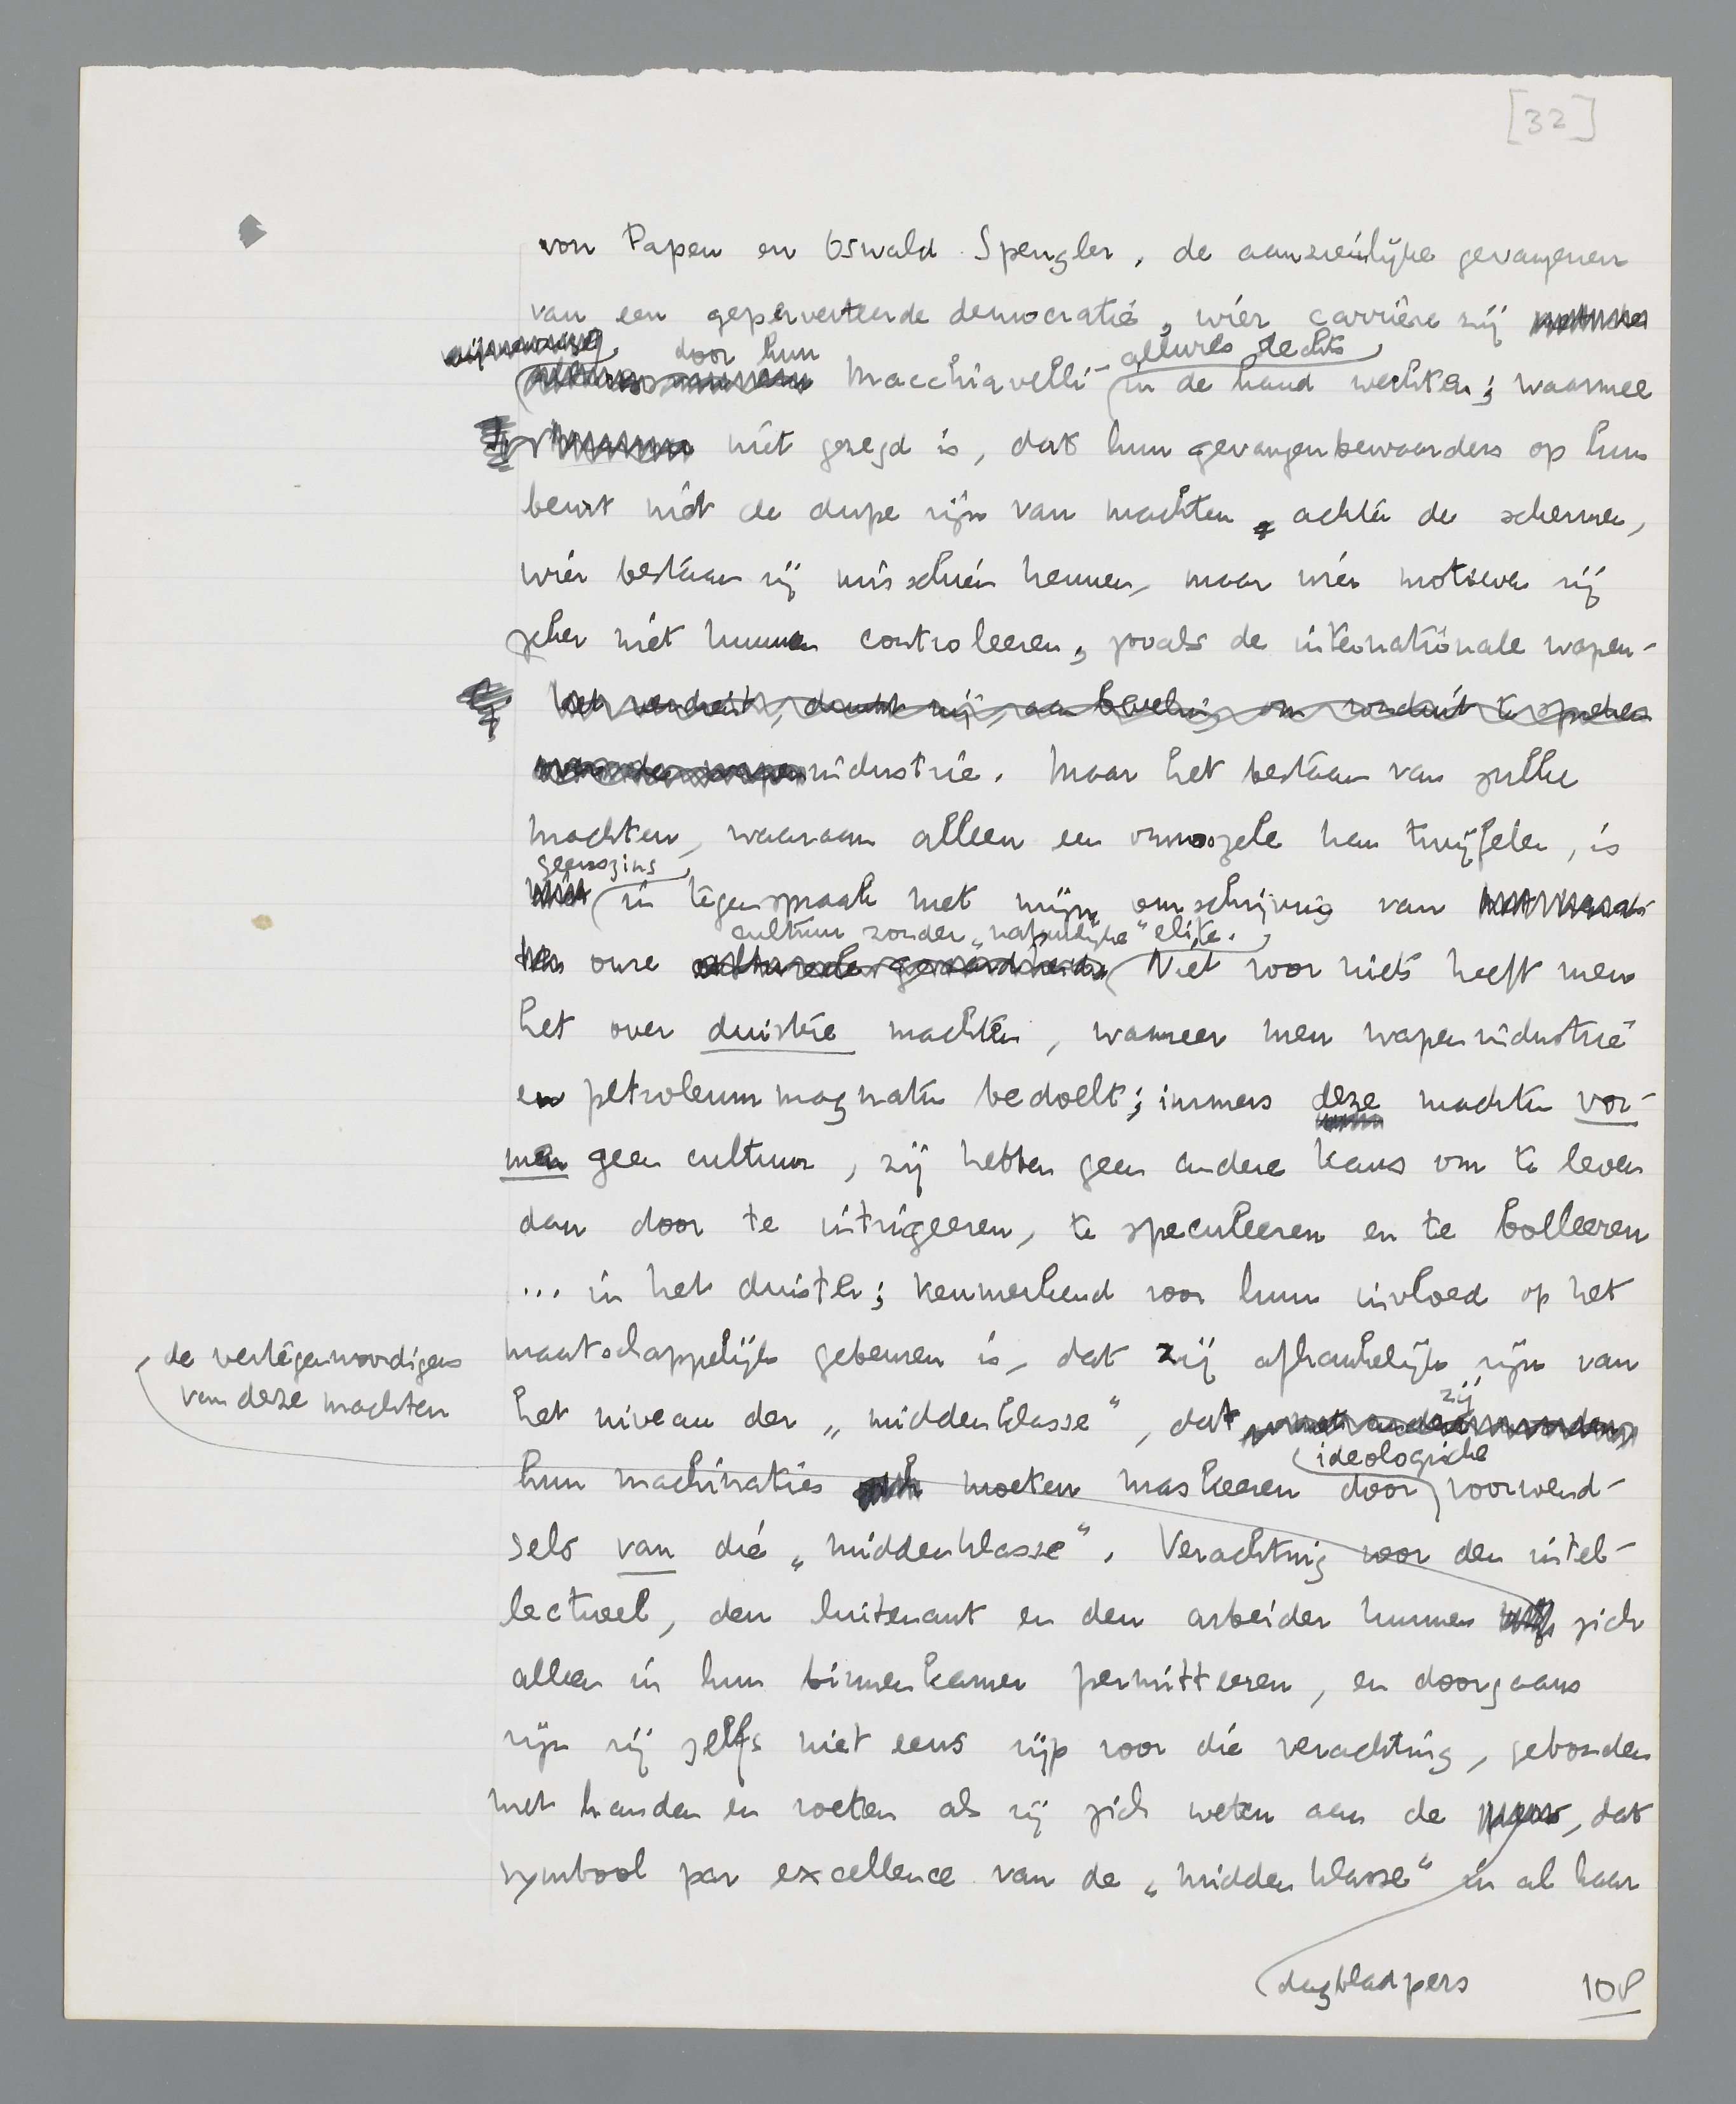 [32]
von Papen en Oswald Spengler, de aanzienlijke gevangenen
van een geperverteerde democratie, wier carrière zij
door hun allures slechts
Macchiavelli- in de hand werkten; waarmee
niet gezegd is, dat hun gevangenbewaarders op hun
beurt niet de dupe zijn van machten achter de schermen,
wier bestaan zij misschien kennen, maar wier motieven zij
zeker niet kunnen controleeren, zooals de internationale wapen-
het verdient, dunkt mij, aanbeveling om ronduit te spreken
over de wapenindustrie. Maar het bestaan van zulke
machten, waaraan alleen een onnoozele kan twijfelen, is
geenszins
niet in tegenspraak met mijn omschrijving van
cultuur zonder „natuurlijke" elite.
onze Niet voor niets heeft men
het over duistere machten, wanneer men wapenindustrie
en petroleummagnaten bedoelt; immers deze machten vor-
men geen cultuur, zij hebben geen andere kans om te leven
dan door te intrigeeren, te speculeeren en te colleeren
... in het duister; kenmerkend voor hun invloed op het
maatschappelijk gebeuren is, dat zij afhankelijk zijn van
de vertegenwoordigers
van deze machten
het niveau der „middenklasse", dat zij
ideologische
hun machinaties moeten maskeeren door voorwend-
sels van die „middenklasse". Verachting voor den intel-
lectueel, den luitenant en den arbeider kunnen zich
alleen in hun binnenkamer permitteeren, en doorgaans
zijn zij zelfs niet eens rijp voor die verachting, gebonden
met handen en voeten als zij zich weten aan de pers, dat
symbool par excellence van de „middenklasse" in al haar
dagbladpers
108